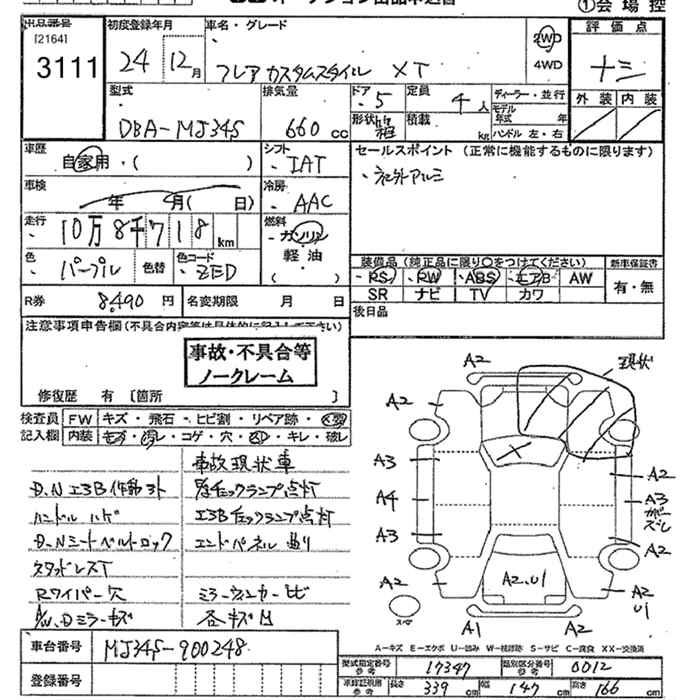 ①会場控
出品番号 [2164] 3111
初度登録年月 24年12月
車名・グレード フレア カスタムスタイル XT
2WD
4WD
評価点
外装 内装
型式 DBA-MJ34S
排気量 660cc
ドア 5
形状 箱
定員 4人
積載 kg
ディーラー・並行
モデル年式 年
ハンドル 左・右
車歴 自家用・( )
シフト IAT
セールスポイント (正常に機能するものに限ります)
・社外アルミ
車検 年 4月( 日)
冷房 AAC
走行 10万8千718km
燃料 ガソリン 軽油
色 パープル 色替
色コード ZED
装備品 (純正品に限り〇をつけてください)
PS PW ABS エアB AW
SR ナビ TV カワ
新車保証書
有・無
R券 8490円
名変期限 月 日
後日品
注意事項申告欄(不具合内容等は具体的に記入して下さい)
事故・不具合等
ノークレーム
修復歴 有 [箇所 ]
検査員記入欄
FW キズ・飛石・ヒビ割・リペア跡・
内装 コゲ・穴・キレ・破レ
事故現状車
D.N エアB作動外
チェックランプ点灯
ハンドルハゲ
エアBチェックランプ点灯
D.Nシートベルトロック
エンドパネル曲り
スタッドレスT
Rワイパー欠
ミラーウィンカーヒビ
D ミラーキズ
各キズ凹
現状
A2
A2
A3
A4
A3
A2
A2
A3
カバーズレ
A2
A2
U1
A2.U1
A1
A2
スペア
A-キズ E-エクボ U-凹み W-補修跡 S-サビ C-腐食 XX-交換済
車台番号 MJ34S-900248
登録番号
型式指定番号 参考 17347
類別区分番号 参考 0012
車庫証明用 参考 長さ 339cm 幅 147cm 高さ 166cm